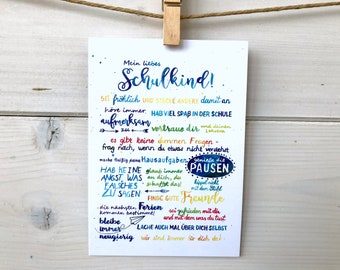 Mein liebes
Schulkind!
SEI fröhlich UND STECKE ANDERE damit an
höre immer
aufmerksam
zu
HAB VIEL SPAß IN DER SCHULE
vertraue dir und deinen Lehrern
es gibt keine dummen Fragen -
frag nach, wenn du etwas nicht verstehst
mache fleißig deine Hausaufgaben
genieße die
PAUSEN
HAB KEINE
ANGST, WAS
FALSCHES
ZU SAGEN
glaub immer
an dich, du
schaffst das!
FINDE GUTE Freunde
die nächsten Ferien
kommen bestimmt!
sei zufrieden mit dir
und mit dem was du tust
bleibe
immer
neugierig
LACHE AUCH MAL ÜBER DICH SELBST
wir sind immer für dich da!